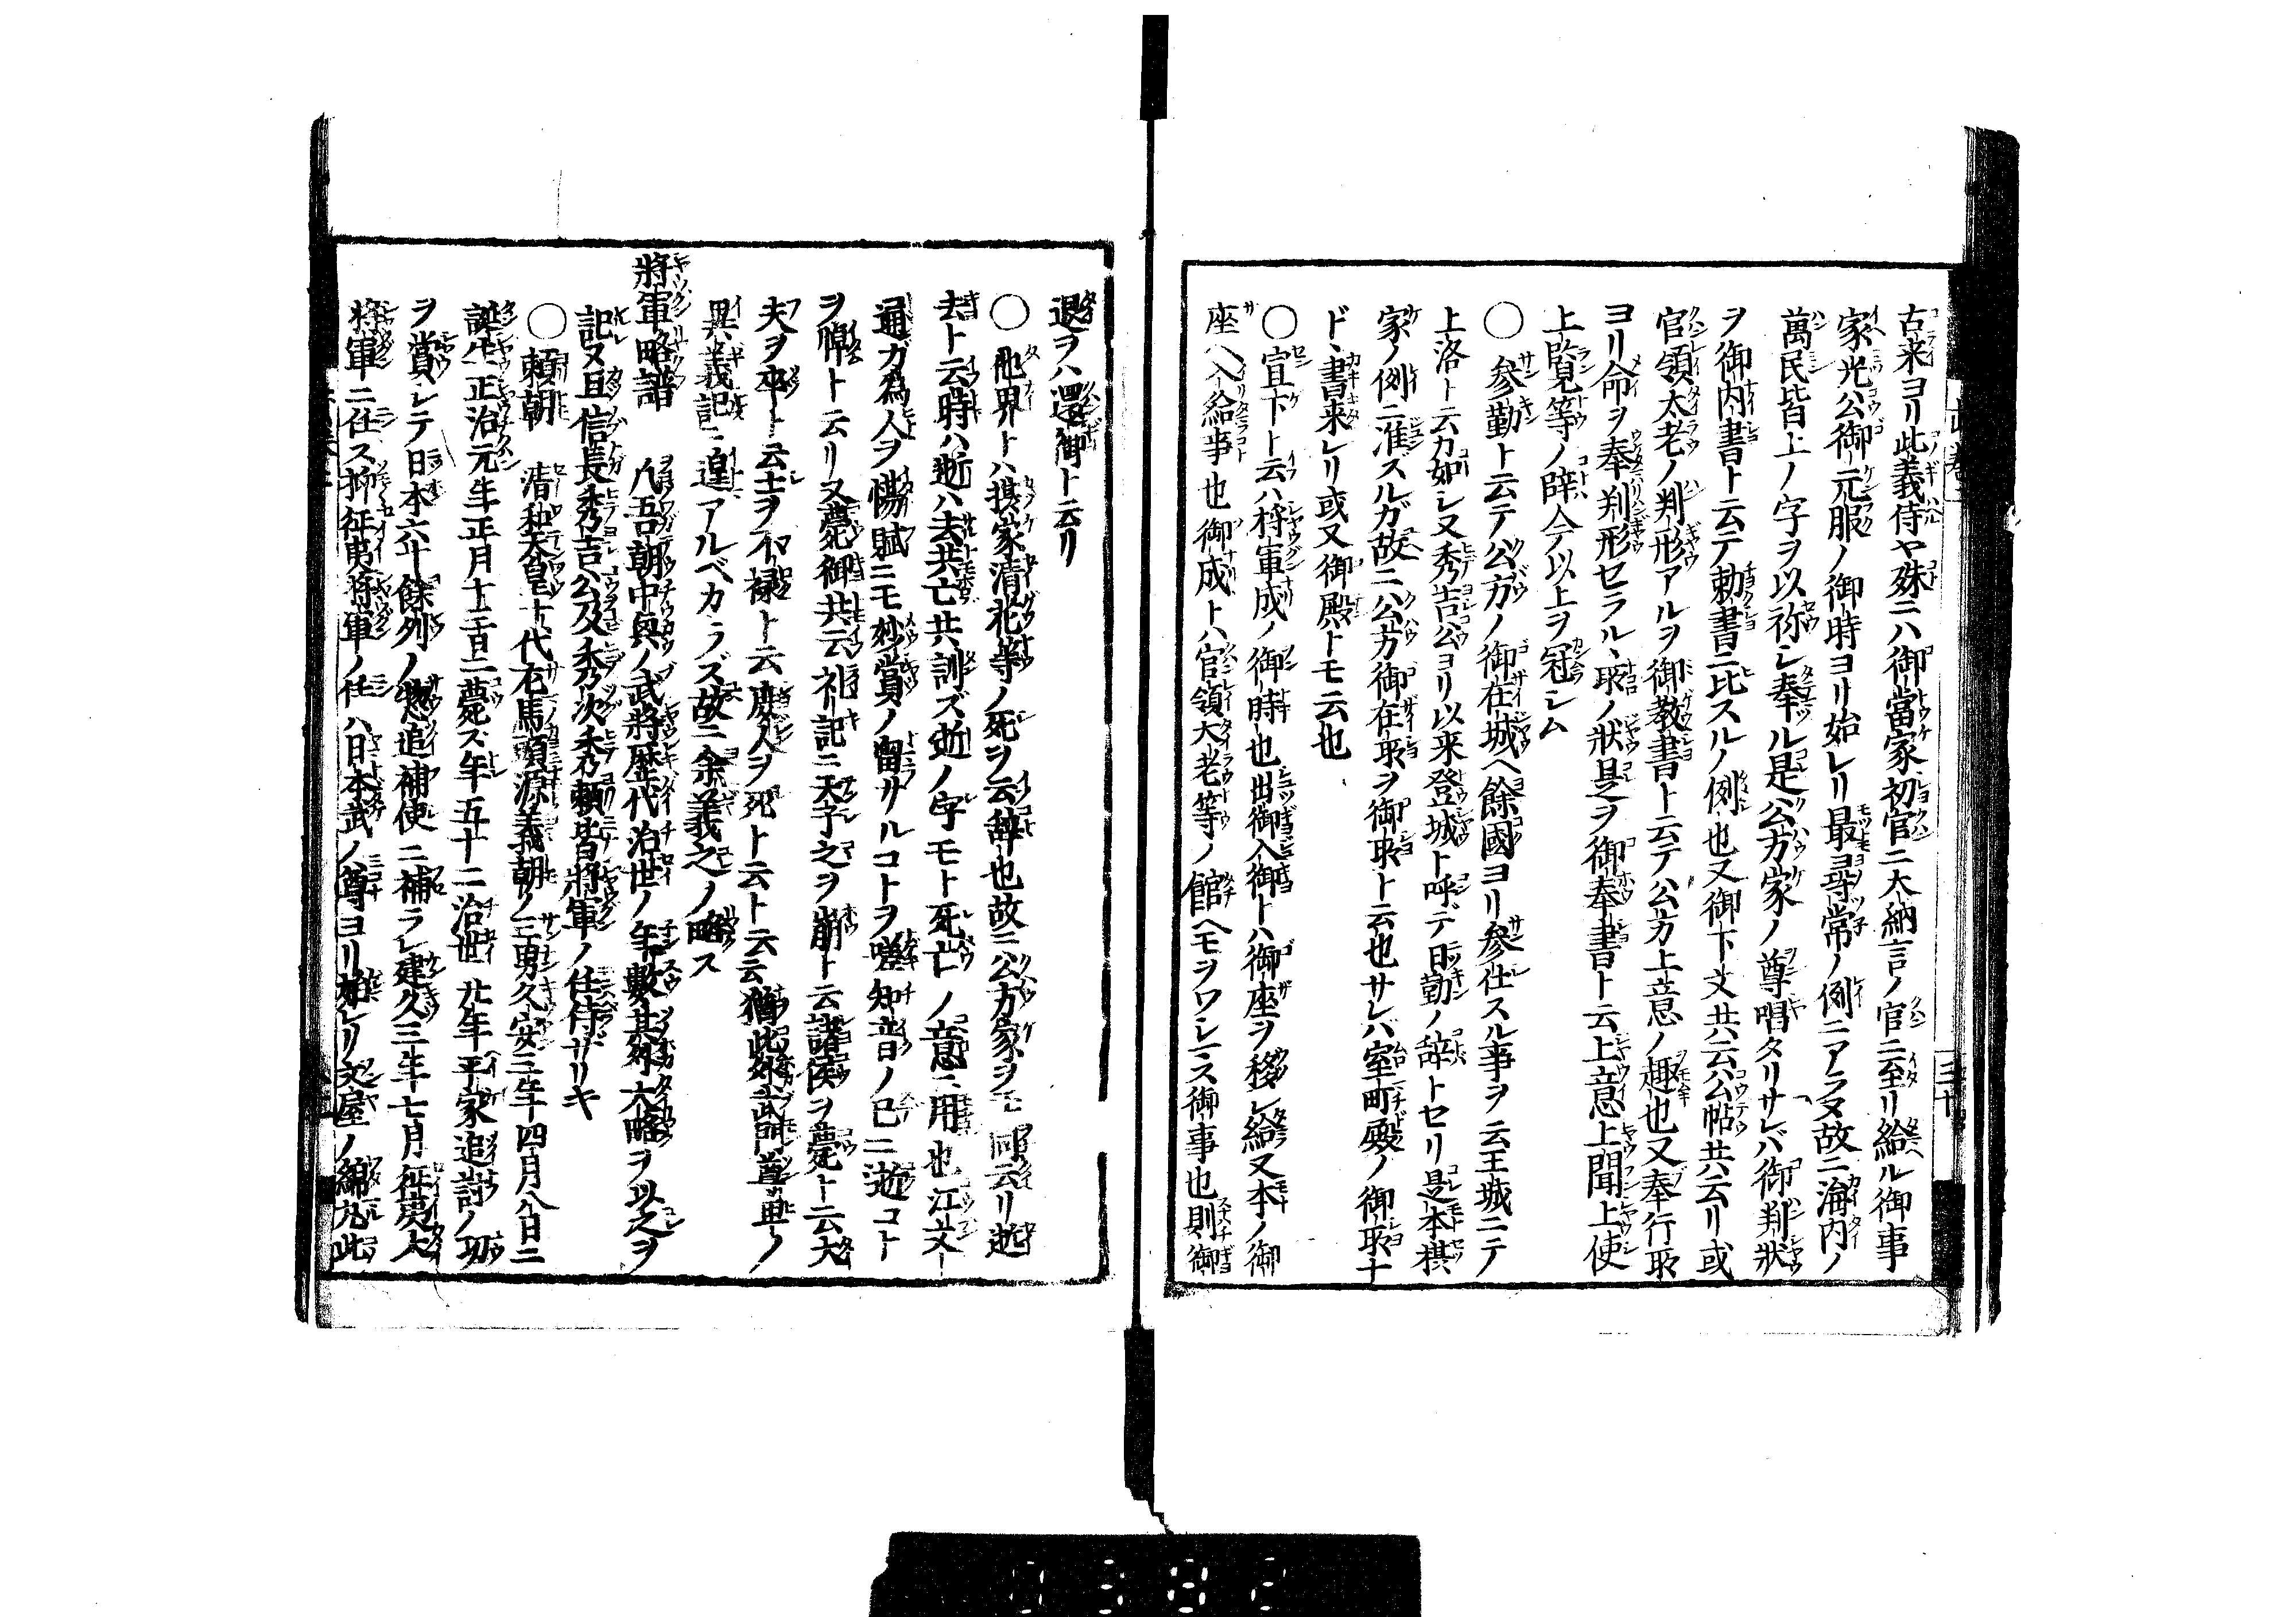 古来ヨリ此義侍ヤ殊ニハ御當家初官ニ大納言ノ官ニ至リ給ル御事
家光公御元服ノ御時ヨリ始レリ最尋常ノ例ニアラヌ故ニ海内ノ
萬民皆上ノ字ヲ以祢シ奉ル是公方家ノ尊唱タリサレバ御判状
ヲ御内書ト云テ勅書ニ比スルノ例也又御下文共云公帖共云リ或
官領太老ノ判形アルヲ御教書ト云テ公方上意ノ趣也又奉行所
ヨリ命ヲ奉判形セラルヽ所ノ状是ヲ御奉書ト云上意上聞上使
上覧等ノ辞今以上ヲ冠シム
〇参勤ト云テ公方ノ御在城ヘ餘國ヨリ参仕スル事ヲ云王城ニテ
上洛ト云カ如シ又秀吉公ヨリ以来登城ト呼デ日勤ノ辞トセリ是本摂
家ノ例ニ准スルガ故ニ公方御在所ヲ御所ト云也サレバ室町殿ノ御所十
ドヽ書来レリ或又御殿トモ云也
〇宣下ト云ハ将軍成ノ御時也出御入御トハ御座ヲ移シ給又本ノ御
座ヘ入給事也御成トハ官領大老等ノ館ヘモヲワシマス御事也則御
退ヲハ還御ト云リ
〇他界トハ摂家清花等ノ死ヲ云辞也故ニ公方家ヲモ同云リ逝
去ト云時ハ逝ハ去共亡共訓ズ逝ノ字モト死亡ノ意ニ用也江文
通ガ為人ヲ愓賦ニモ妙賞ノ留サルコトヲ嗟知音ノ已ニ逝コト
ヲ悼ト云リ又薨御共云礼記ニ天子之ヲ崩ト云諸侯ヲ薨ト云大
夫ヲ卒ト云士ヲ不禄ト云庶人ヲ死ト云ト云云猶此外武門尊卑ノ
異義記ニ遑アルベカラズ故ニ余義之ノ略ス
將軍略譜 八吾朝中興ノ武將歴代治世ノ年數其外大略ヲ以之ヲ
記又且信長秀吉公及秀次秀頼皆將軍ノ任侍ザリキ
〇頼朝 清和天皇十代左馬頭源義朝ノ三男久安三年四月八日ニ
誕生正治元年正月十三日ニ薨ズ年五十二治世廿年平家追討ノ功
ヲ賞レテ日本六十餘列ノ惣追補使ニ補ラレ建久三年七月征夷大
将軍ニ任ス抑征夷将軍ノ任ハ日本武ノ尊ヨリ始レリ文屋ノ綿丸此